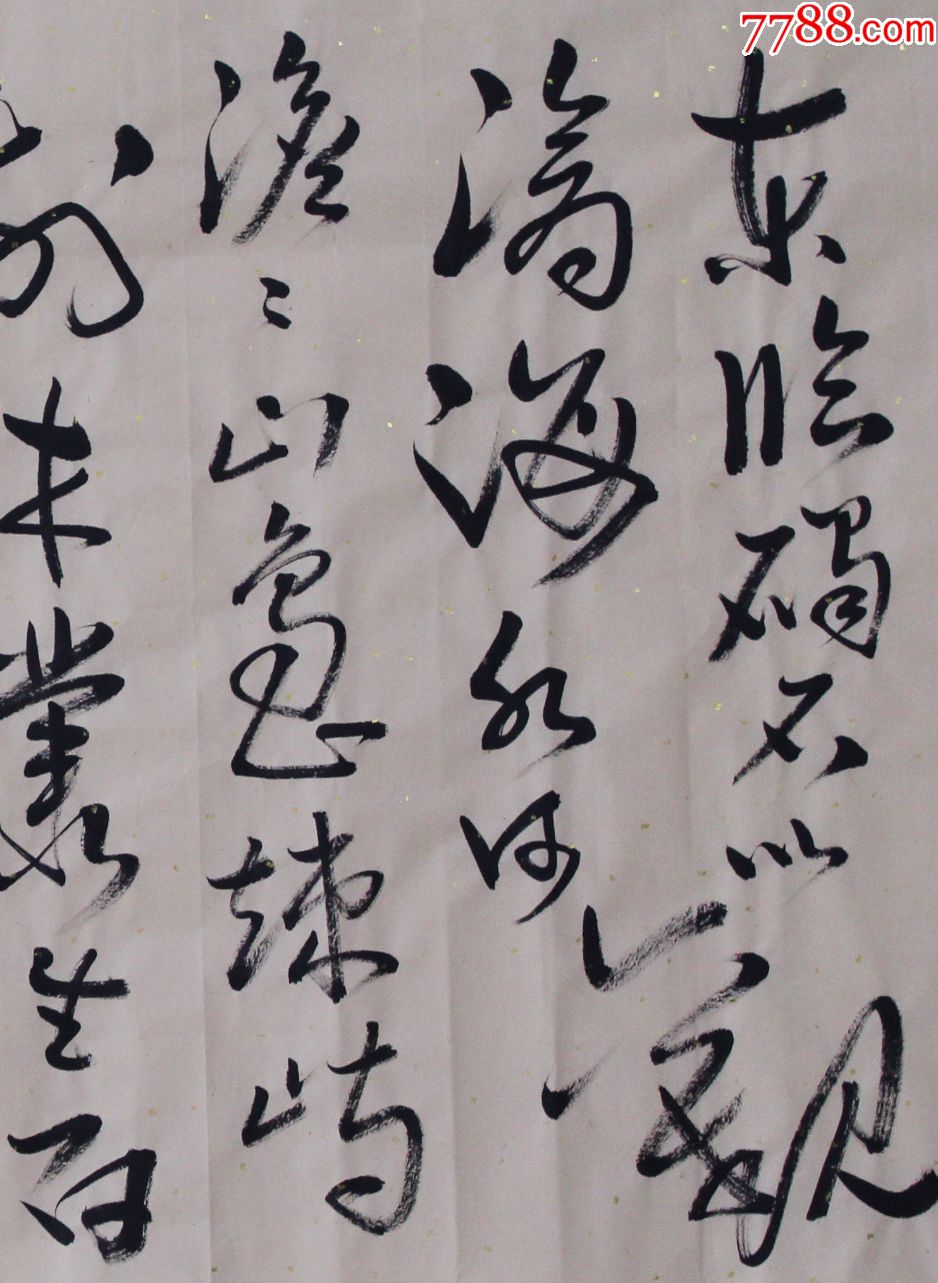 7788.com
東臨碣石以觀
滄海水何
澹々山島竦峙
樹木叢生百